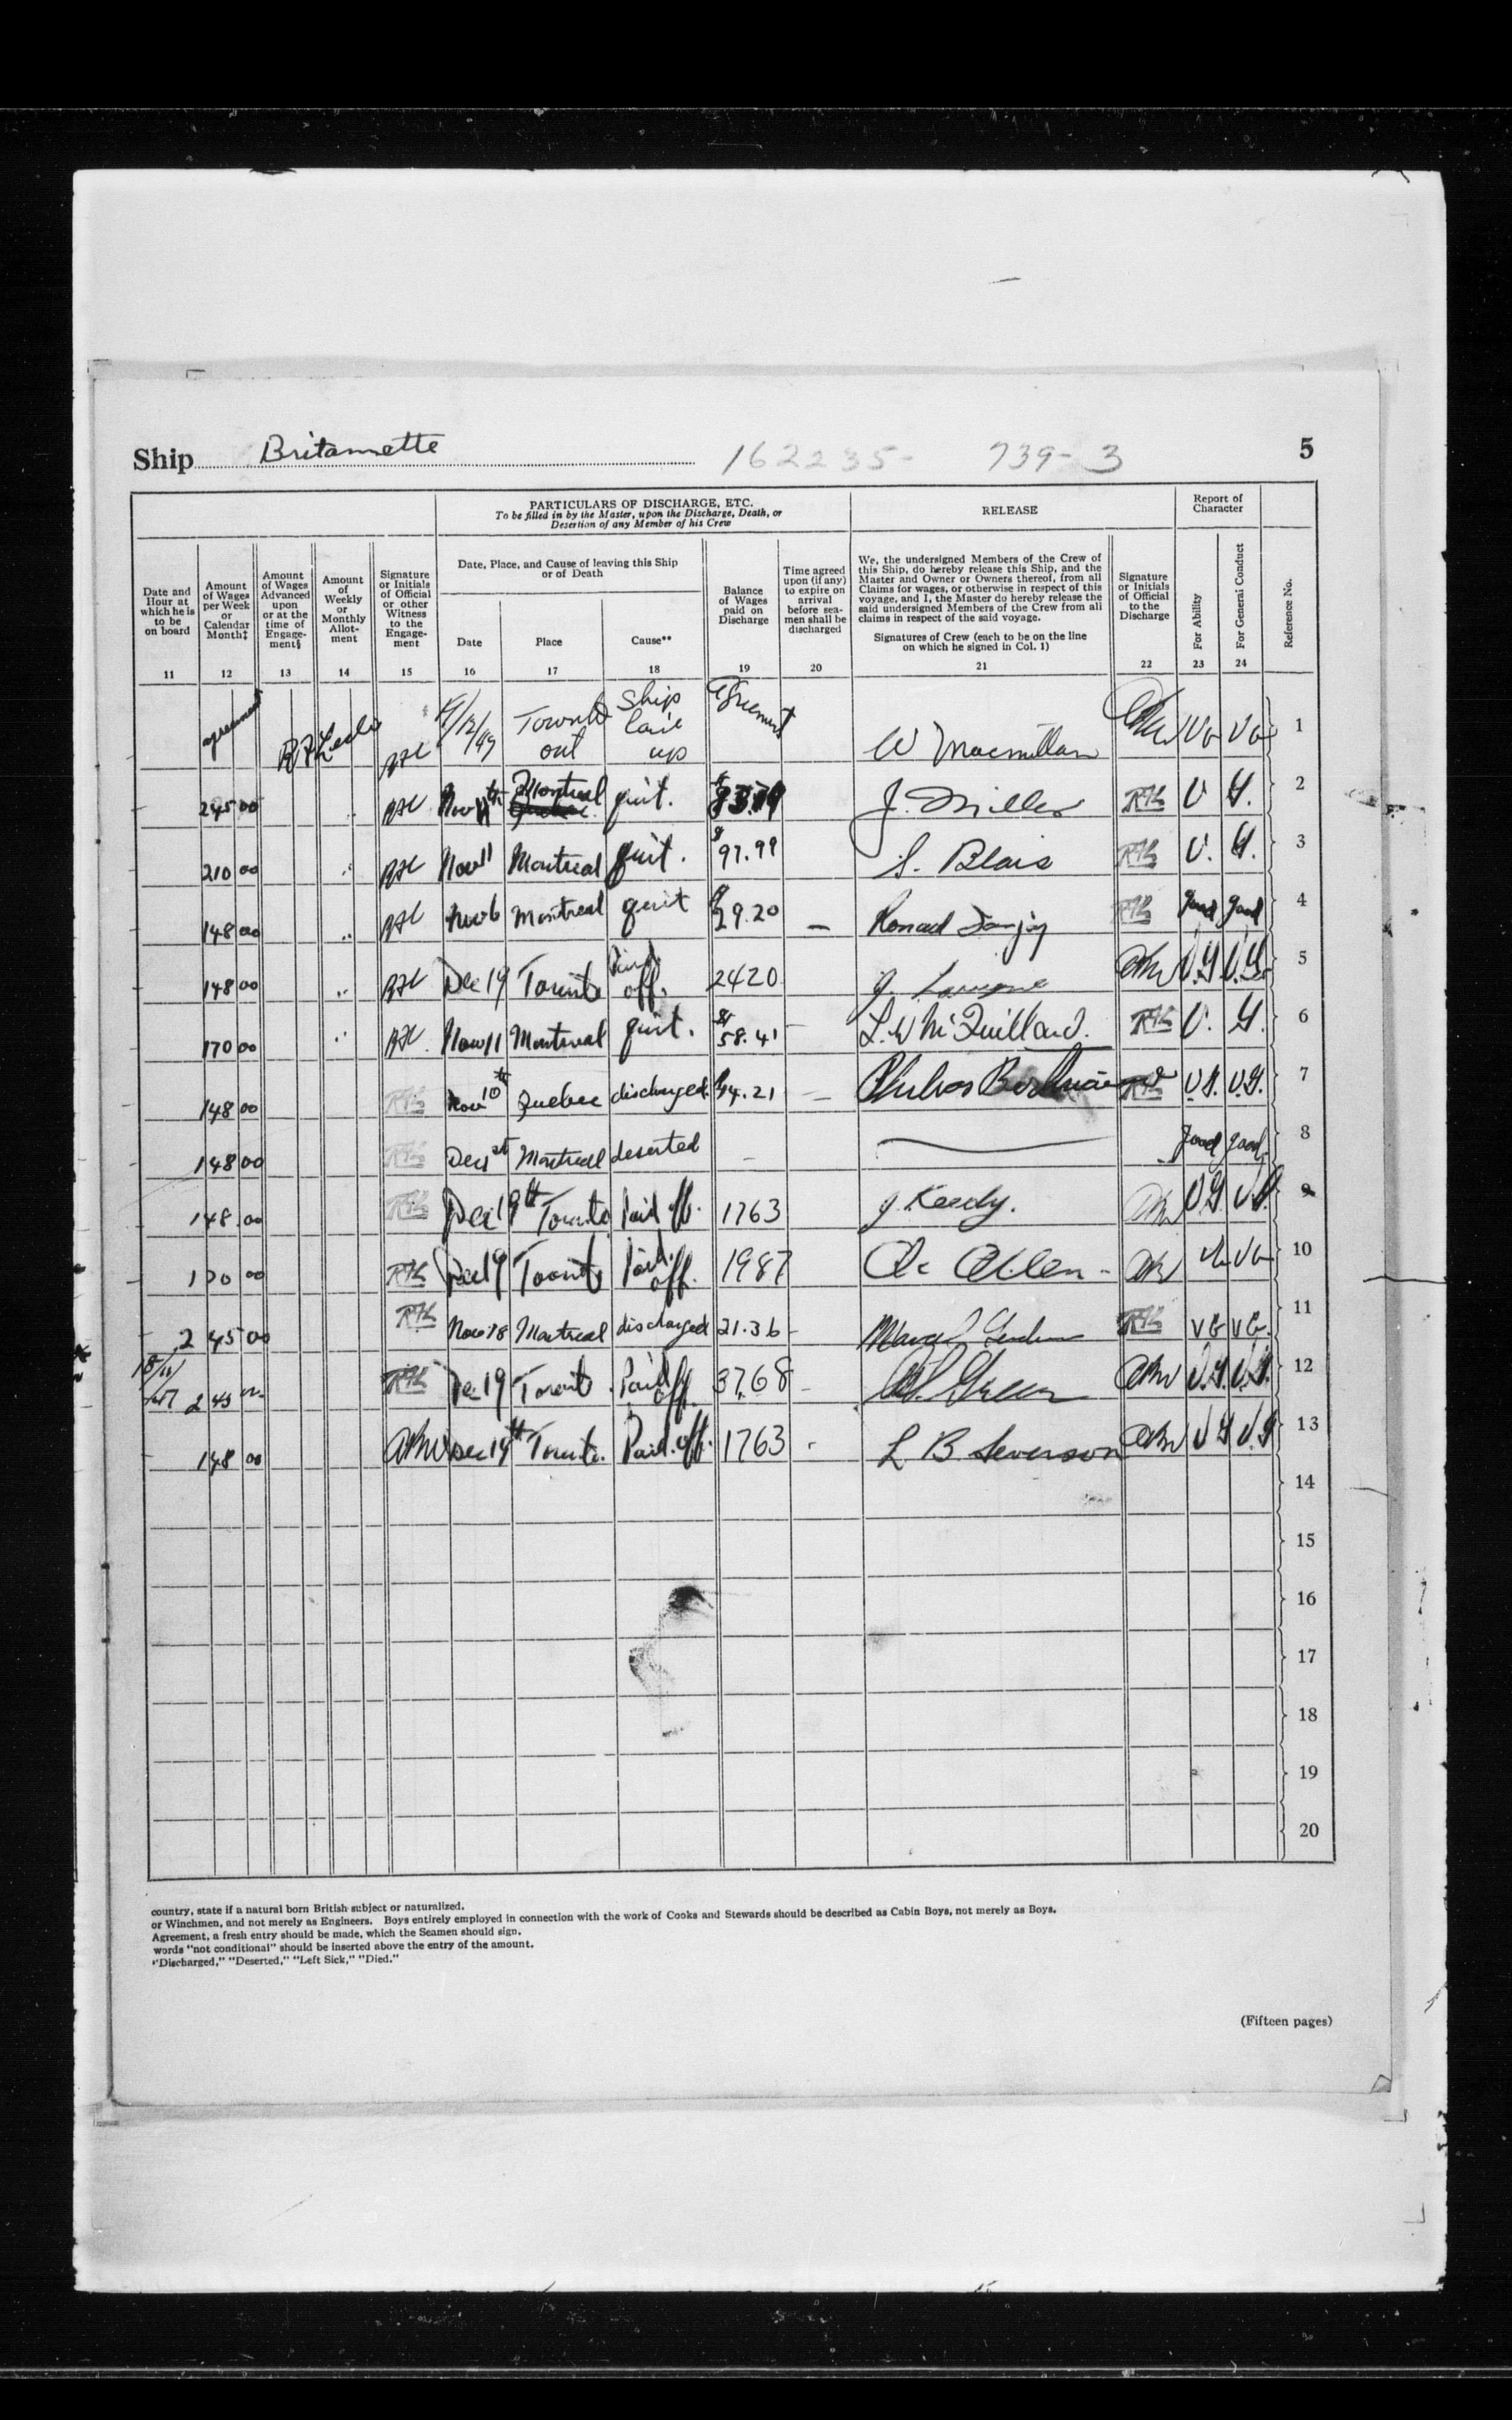 Ship Britamette 162235- 739-3 5
PARTICULARS OF DISCHARGE, ETC.
To be filled in by the Master, upon the Discharge, Death, or
Desertion of any Member of his Crew
RELEASE
Report of
Character
Date and
Hour at
which he is
to be
on board
Amount
of Wages
per Week
or
Calendar
Month‡
Amount
of Wages
Advanced
upon
or at the
time of
Engage-
ment§
Amount
of
Weekly
or
Monthly
Allot-
ment
Signature
or Initials
of Official
or other
Witness
to the
Engage-
ment
Date, Place, and Cause of leaving this Ship
or of Death
Date
Place
Cause**
Balance
of Wages
paid on
Discharge
Time agreed
upon (if any)
to expire on
arrival
before sea-
men shall be
discharged
We, the undersigned Members of the Crew of
this Ship, do hereby release this Ship, and the
Master and Owner or Owners thereof, from all
Claims for wages, or otherwise in respect of this
voyage, and I, the Master do hereby release the
said undersigned Members of the Crew from all
claims in respect of the said voyage.
Signatures of Crew (each to be on the line
on which he signed in Col. 1)
Signature
or Initials
of Official
to the
Discharge
For Ability
For General Conduct
Reference No.
11 12 13 14 15 16 17 18 19 20 21 22 23 24
agreement 19/12/49 Toronto out Ship laid up Agreement W Macmillan VG VG 1
245 00 Nov 11th Montreal quit. J. Miller RHL V G. 2
210 00 Nov 11 Montreal quit. $97.99 S. Blais RHL V. G. 3
148 00 Nov 6 Montreal quit $29.20 — RHL good good 4
148 00 Dec 19 Toronto Paid off. 2420 V.G V.G. 5
170 00 Nov 11 Montreal quit. $58.41 L. W McQuilland. RHL V. G. 6
148 00 RHL Nov 10th Quebec discharged. $14.21 — RHL V.G. V.G. 7
148 00 RHL Dec 1st Montreal deserted — good good. 8
148.00 RHL Dec 19th Toronto Paid off. 1763 J. Keedy. V.G V.G. 9
170 00 RHL Dec 19 Toronto Paid off. 1987 Allen VG 10
245 00 RHL Nov 18 Montreal discharged 21.36 Marcel RHL VG VG. 11
18/11 245 RHL Dec 19 Toronto. Paid off. 3768 Green V.G. V.G. 12
148 00 Dec 19th Toronto. Paid. off. 1763 L B Severson V G V.G 13
14
15
16
17
18
19
20
country, state if a natural born British subject or naturalized.
or Winchmen, and not merely as Engineers. Boys entirely employed in connection with the work of Cooks and Stewards should be described as Cabin Boys, not merely as Boys.
Agreement, a fresh entry should be made, which the Seamen should sign.
words "not conditional" should be inserted above the entry of the amount.
"Discharged," "Deserted," "Left Sick," "Died."
(Fifteen pages)